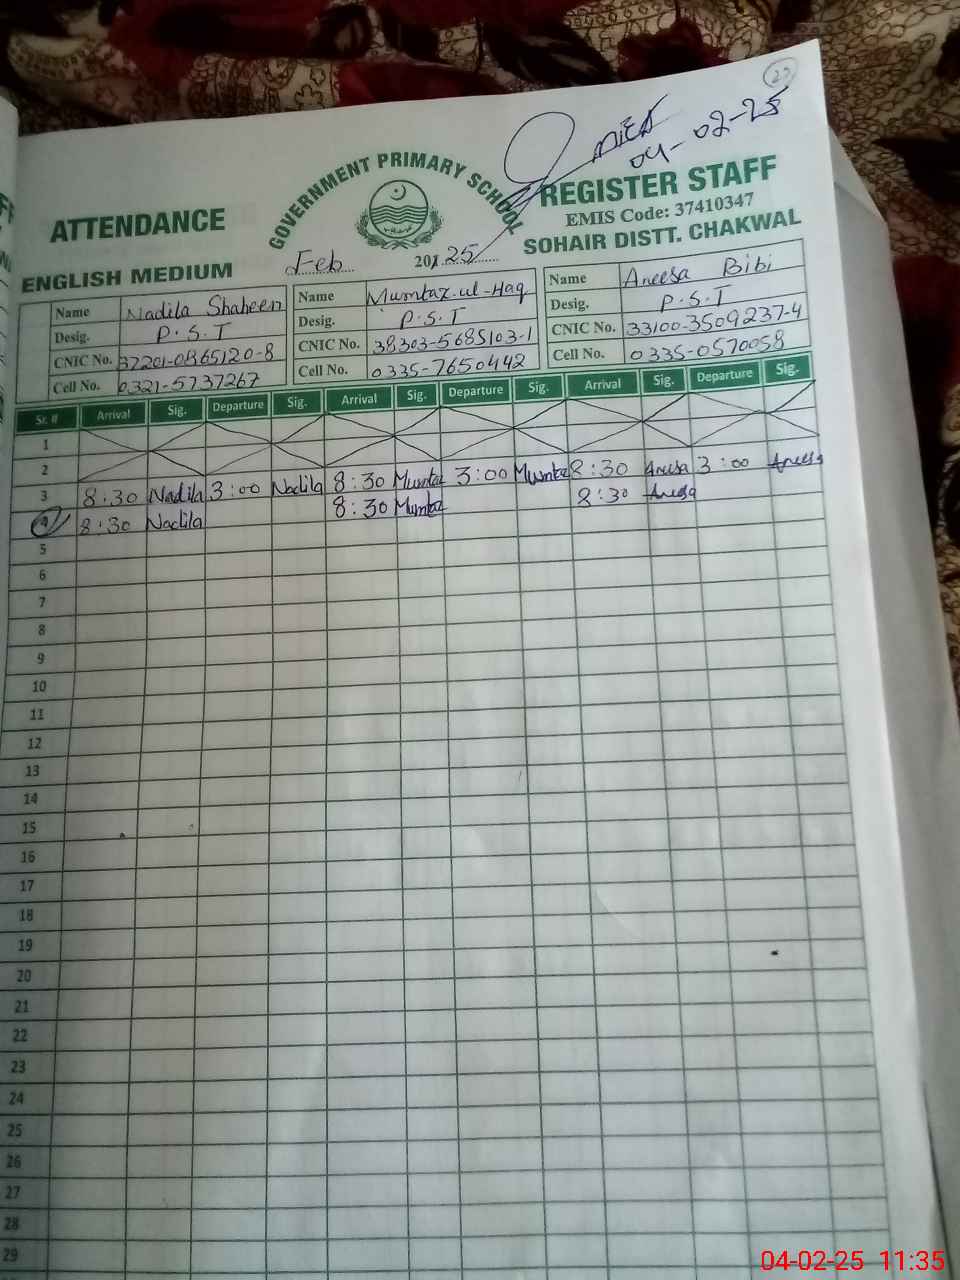 27
04-02-25
GOVERNMENT PRIMARY SCHOOL
ATTENDANCE REGISTER STAFF
EMIS Code: 37410347
ENGLISH MEDIUM Feb 20 25 SOHAIR DISTT. CHAKWAL
Name Nadila Shaheen Name Mumtaz-ul-Haq Name Aneesa Bibi
Desig. P.S.T Desig. P.S.T Desig. P.S.T
CNIC No. 37201-0865120-8 CNIC No. 38303-5685103-1 CNIC No. 33100-3509237-4
Cell No. 0321-5737267 Cell No. 0335-7650442 Cell No. 0335-0570058
Sr. # Arrival Sig. Departure Sig. Arrival Sig. Departure Sig. Arrival Sig. Departure Sig.
1
2
3 8:30 Nadila 3:00 Nadila 8:30 Mumtaz 3:00 Mumtaz 8:30 Aneesa 3:00 Aneesa
4 8:30 Nadila 8:30 Mumtaz 8:30 Aneesa
5
6
7
8
9
10
11
12
13
14
15
16
17
18
19
20
21
22
23
24
25
26
27
28
29
04-02-25 11:35